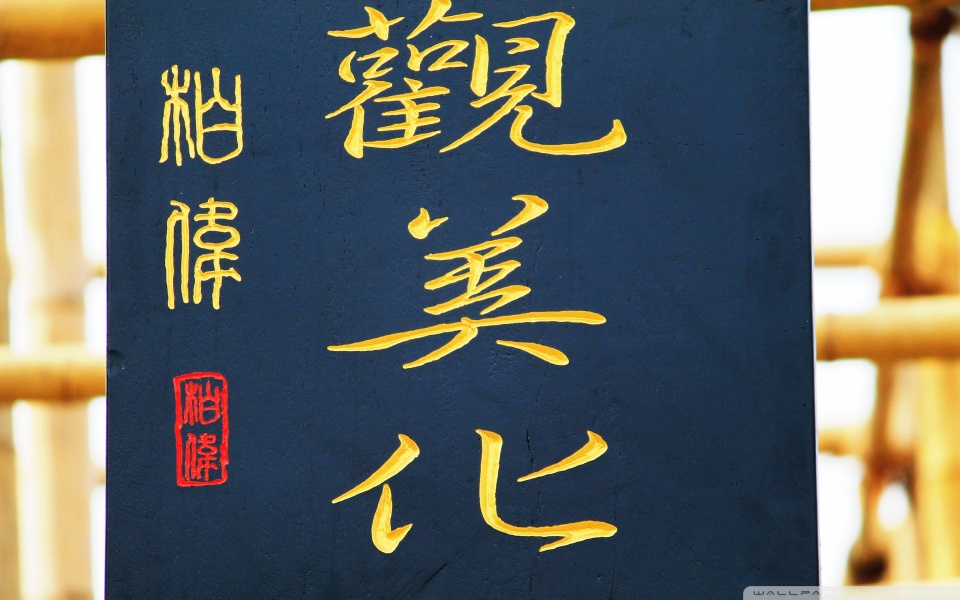 觀美化
柏偉
柏偉